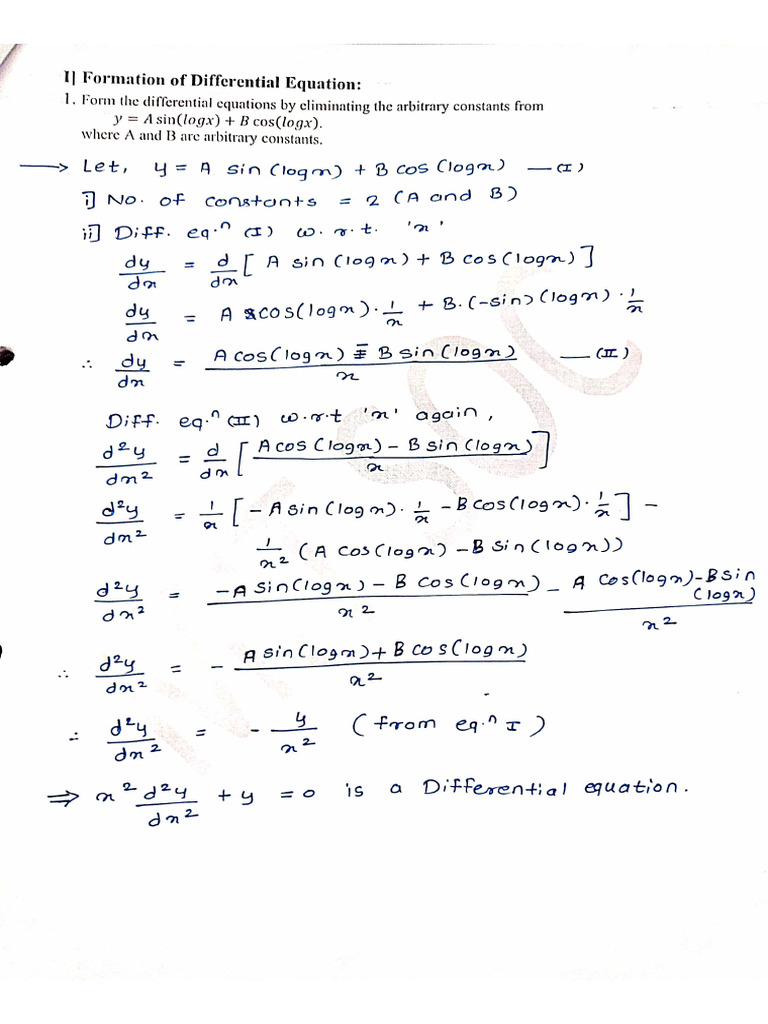 I] Formation of Differential Equation:
1. Form the differential equations by eliminating the arbitrary constants from
y = A sin(logx) + B cos(logx).
where A and B are arbitrary constants.
→ Let, y = A sin (logx) + B cos (logx) —(I)
i] No. of constants = 2 (A and B)
ii] Diff. eq.ⁿ (I) w.r.t. 'x'
dy/dx = d/dx [A sin (logx) + B cos (logx)]
dy/dx = A cos(logx)·1/x + B·(-sin)(logx)·1/x
∴ dy/dx = (A cos(logx) - B sin(logx))/x —(II)
Diff. eq.ⁿ (II) w.r.t 'x' again,
d²y/dx² = d/dx [(A cos (logx) - B sin (logx))/x]
d²y/dx² = 1/x [-A sin (logx)·1/x - B cos(logx)·1/x] -
1/x² (A cos(logx) - B sin (logx))
d²y/dx² = (-A sin(logx) - B cos (logx))/x² - (A cos(logx) - B sin (logx))/x²
∴ d²y/dx² = - (A sin(logx) + B cos (logx))/x²
∴ d²y/dx² = - y/x² (from eq.ⁿ I)
⇒ x² d²y/dx² + y = 0 is a Differential equation.